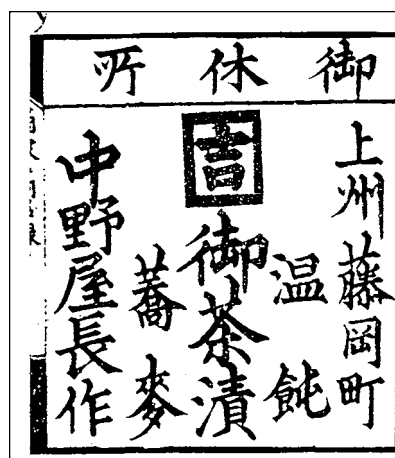 御休所
上州藤岡町
温飩
吉
御茶漬
蕎麥
中野屋長作